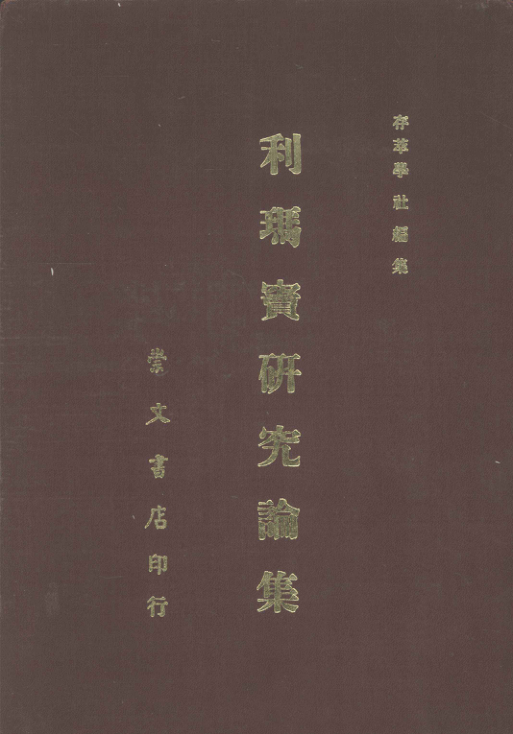 存萃學社編集
利瑪竇研究論集
崇文書店印行